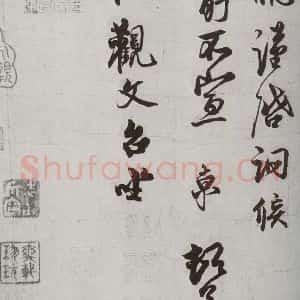 謹啓詗候
前不宣 京 頓
觀文台坐
Shufawang.cn